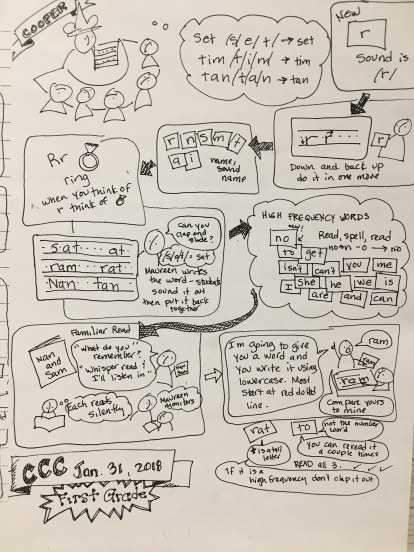 COOPER
r
Set /s/e/t/ → set
tim /t/i/m/ → tim
tan /t/a/n/ → tan
New
r
Sound is
/r/
r r
r
Down and back up
do it in one move
r n s m t
a i
name, sound
name
Rr
ring
when you think of
r think of
Can you
clap and
slide?
/s/a/t/ = sat
Maureen writes
the word - students
sound it out
then put it back
together
s-at at
ram rat
Nan tan
HIGH FREQUENCY WORDS
new!
no
Read, spell, read
no → n - o → no
to get
isn't can't you me
I She he we is
are and can
Familiar Read
Nan
and
Sam
"What do you
remember?"
"Whisper read &
I'll listen in"
Each reads
silently
Maureen
monitors
I'm going to give
you a word and
you write it using
lowercase. Most
start at red dotted
line.
ram
ram
ram
Compare yours
to mine
rat
t is a tall
letter
to
not the number
word
you can reread it
a couple times
READ all 3.
If it is a
high frequency don't clap it out
CCC Jan. 31, 2018
First Grade